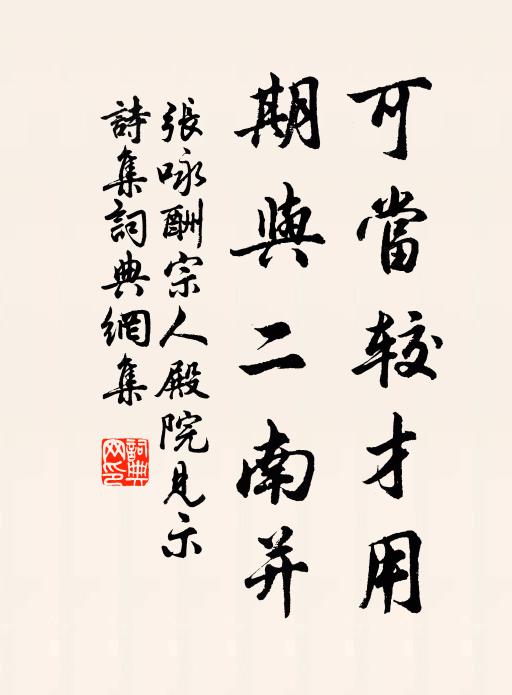 可當較才用
期與二南并
張咏酬宗人殿院見示
詩集詞典網集
詞典網印